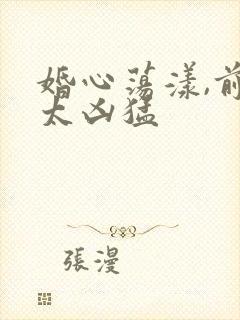 婚心荡漾,前
太凶猛
張漫